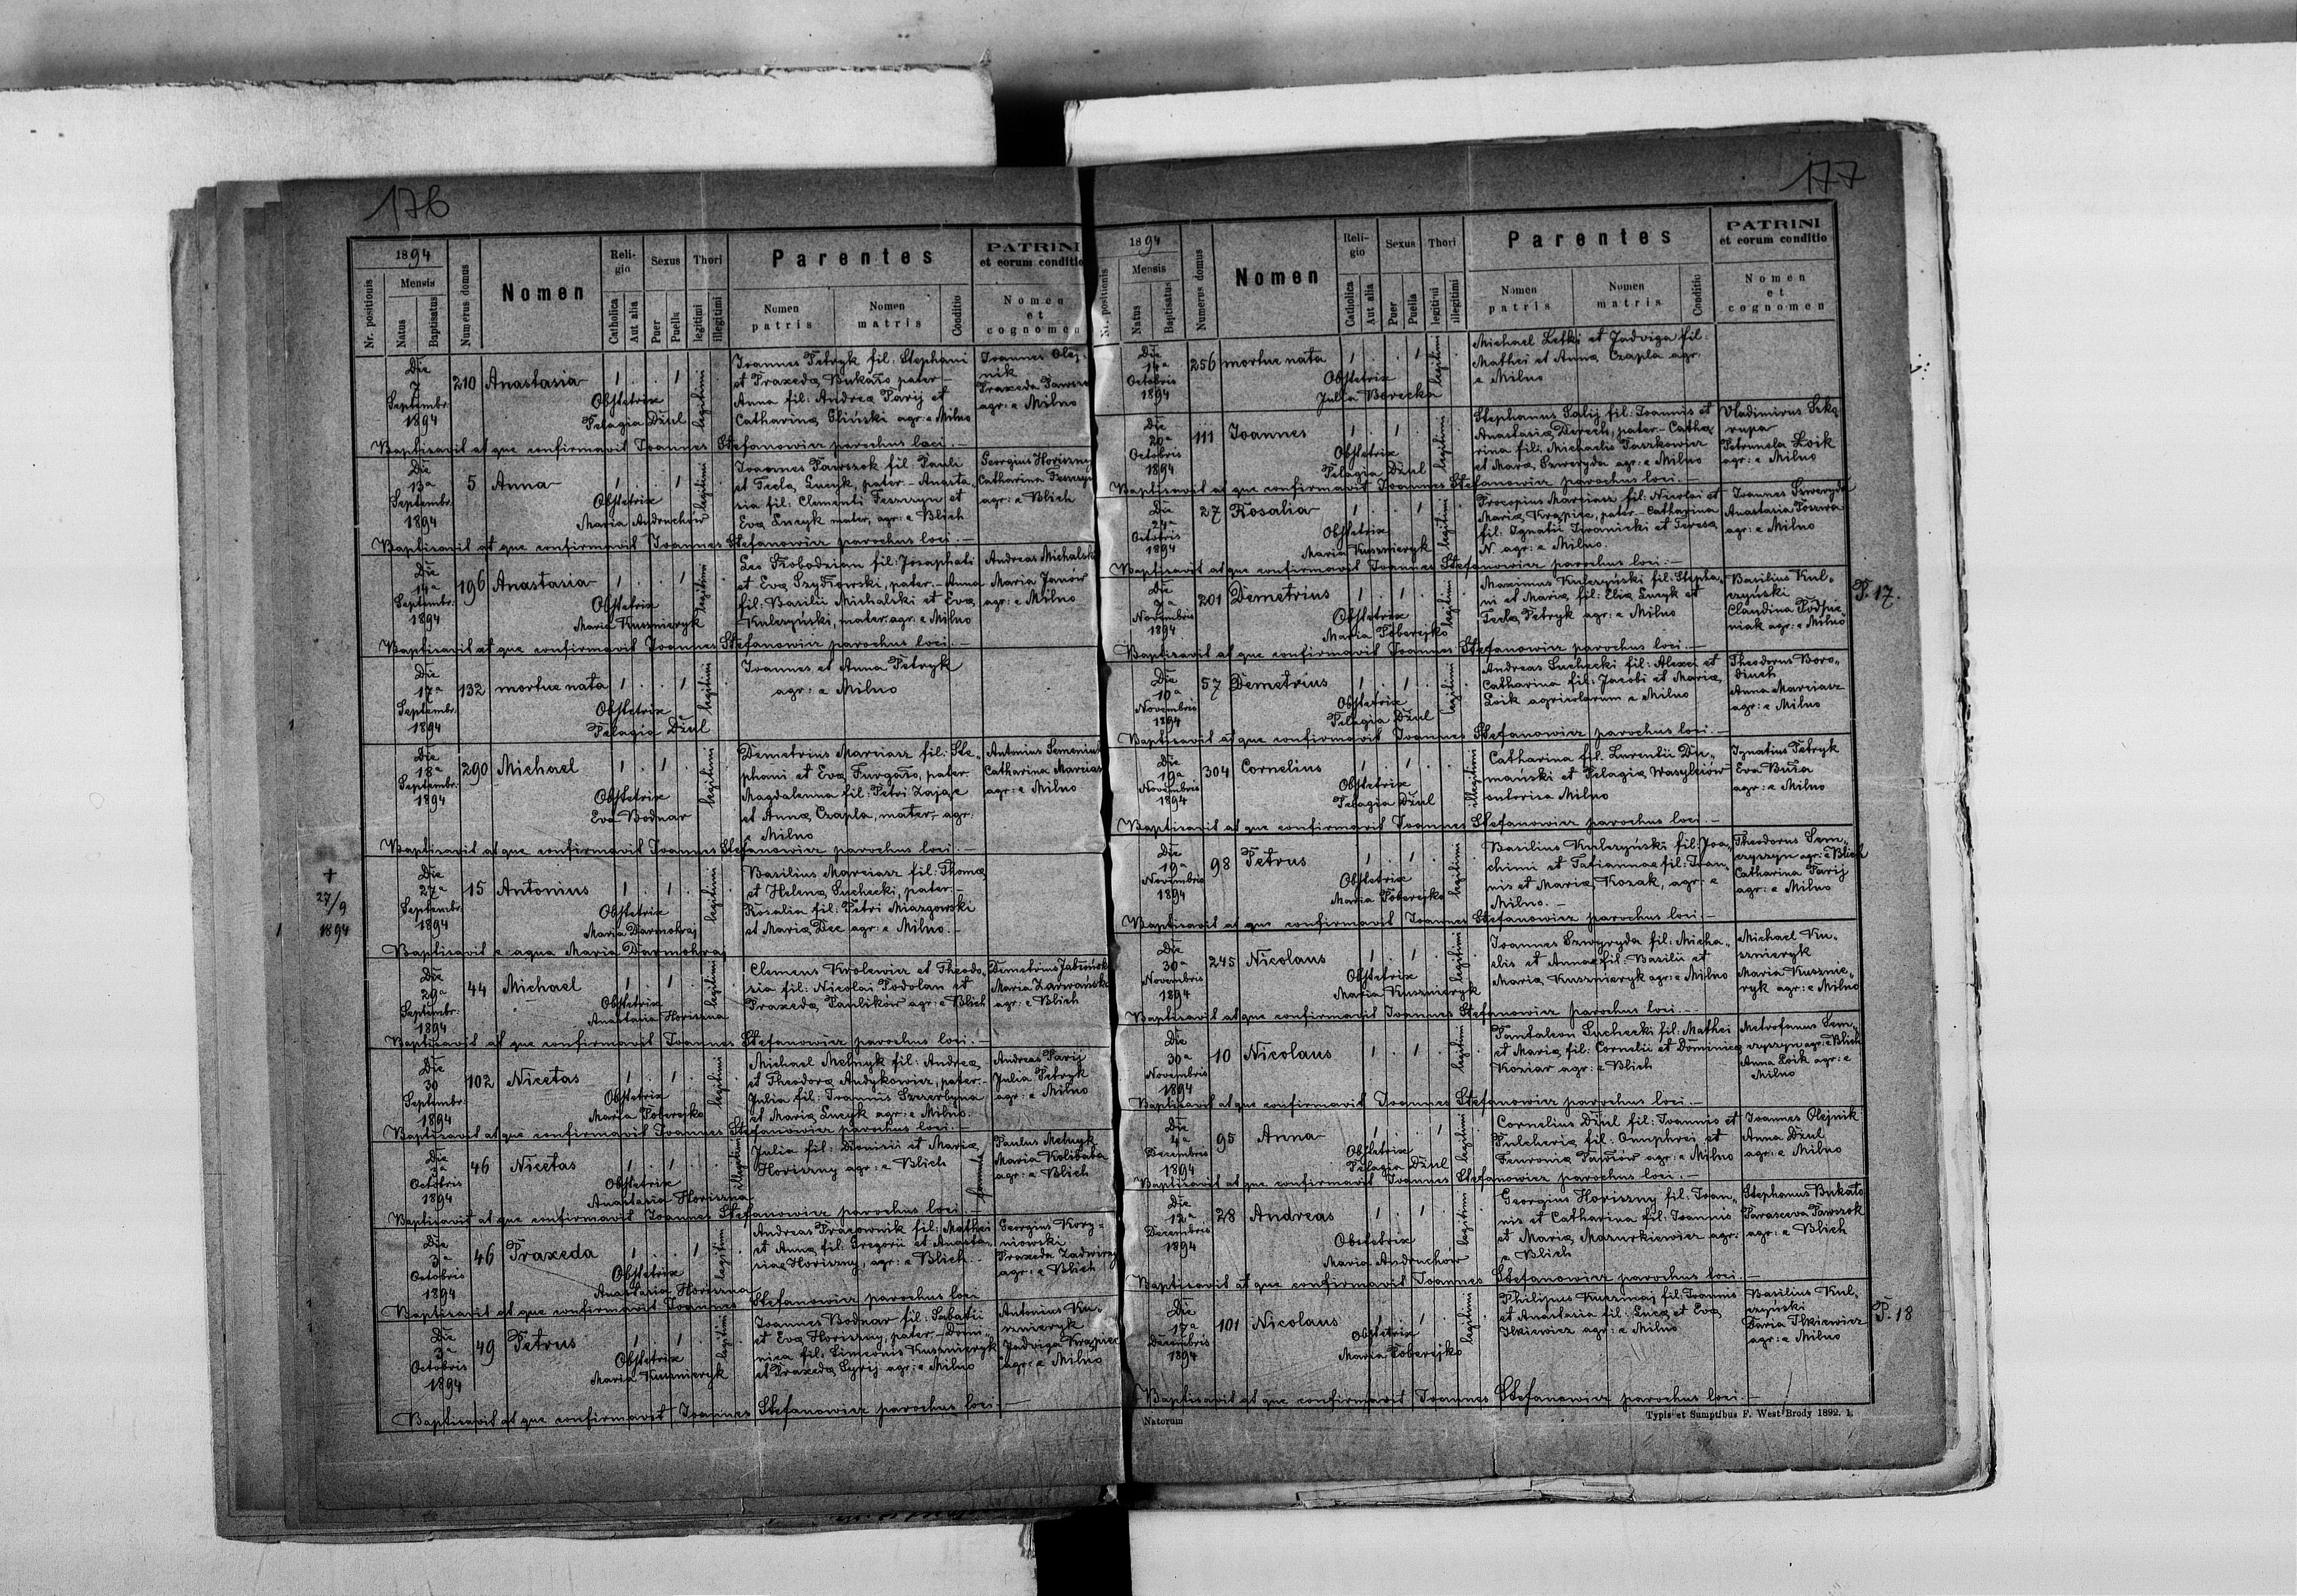 176
1894
Nr. positionis
Mensis
Natus
Baptisatus
Numerus domus
Nomen
Religio
Catholica
Aut alia
Sexus
Puer
Puella
Thori
legitimi
illegitimi
Parentes
Nomen patris
Nomen matris
Conditio
PATRINI
et eorum conditio
Nomen
et
cognomen
Die 7 Septembr. 1894
210 Anastasia 1 . . 1 legitimi
Obstetrix
Pelagia Dżul
Joannes Petryk fil: Stephani
et Praxeda Bukato pater –
Anna fil: Andrea Parij et
Catharina Gliński agr: e Milno
Joannes Olej-
nik
Praxeda
agr: e Milno
Baptisavit at que confirmavit Joannes Stefanowicz parochus loci. –
Die 13a Septembr. 1894
5 Anna 1 . . 1 legitimi
Obstetrix
Maria Andruchów
Joannes Pawszok fil: Pauli
et Tecla Lucyk, pater. – Anasta-
sia fil: Clementi Feszczyn et
Eva Lucyk mater, agr: e Blich
Georgius Horiszny
Catharina
agr: e Blich
Baptisavit at que confirmavit Joannes Stefanowicz parochus loci. –
Die 14a Septembr. 1894
196 Anastasia 1 . . 1 legitimi
Obstetrix
Maria Kusznieryk
Leo Słobodzian fil: Josaphati
et Eva Szydłowski, pater. – Anna
fil: Basilii Michalski et Eva
Kulczyński, mater. agr: e Milno
Andreas Michalski
Maria Janów
agr: e Milno
Baptisavit at que confirmavit Joannes Stefanowicz parochus loci. –
Die 17a Septembr. 1894
132 mortue nata 1 . . 1 legitimi
Obstetrix
Pelagia Dżul
Joannes et Anna Petryk
agr: e Milno
Die 18a Septembr. 1894
290 Michael 1 . 1 . legitimi
Obstetrix
Eva Bodnar
Demetrius Marciasz fil: Ste-
phani et Eva Furgało, pater.
Magdalenna fil: Petri Zając
et Anna Czapla, mater, agr.
e Milno
Antonius Semeniuk
Catharina Marciasz
agr: e Milno
Baptisavit at que confirmavit Joannes Stefanowicz parochus loci. –
† 27/9 1894
Die 27a Septembr. 1894
15 Antonius 1 . 1 . legitimi
Obstetrix
Maria Darmohraj
Basilius Marciasz fil: Thoma
et Helena Suchecki, pater. –
Rosalia fil: Petri Miazgowski
et Maria Dec agr: e Milno. –
Baptisavit e aqua Maria Darmohraj
Die 29a Septembr. 1894
44 Michael 1 . 1 . legitimi
Obstetrix
Anastasia Horiszna
Clemens Krolewicz et Theodo-
sia fil: Nicolai Podolan et
Praxeda Paulików agr: e Blich
Demetrius Jabłoński
Maria Zarwańska
agr: e Blich
Baptisavit at que confirmavit Joannes Stefanowicz parochus loci. –
Die 30 Septembr. 1894
102 Nicetas 1 . 1 . legitimi
Obstetrix
Maria Poberejko
Michael Melnyk fil: Andrea
et Theodora Andykowicz, pater. –
Julia fil: Joannis Szczerbyna
et Maria Lucyk agr: e Milno.
Andreas Parij
Julia Petryk
agr: e Milno
Baptisavit at que confirmavit Joannes Stefanowicz parochus loci. –
Die Octobris 1894
46 Nicetas 1 . 1 . illegitimi
Obstetrix
Anastasia Horiszna
Julia fil: Dionisii et Maria
Horiszny agr: e Blich
famula
Paulus Melnyk
Maria Kolibaba
agr: e Blich
Baptisavit at que confirmavit Joannes Stefanowicz parochus loci. –
Die 3a Octobris 1894
46 Praxeda 1 . . 1 legitimi
Obstetrix
Anastasia Horiszna
Andreas Pracownik fil: Mathei
et Anna fil: Gregorii et Anasta-
siae Horiszny, agr: e Blich. –
Georgius Kory-
niowski
Praxeda Zadwiraj
agr: e Blich
Baptisavit at que confirmavit Joannes Stefanowicz parochus loci
Die 3a Octobris 1894
49 Petrus 1 . 1 . legitimi
Obstetrix
Maria Kusznieryk
Joannes Bodnar fil: Sabatii
et Eva Horiszny, pater – Dom-
nica fil: Simeonis Kusznieryk
et Praxeda Syrij agr: e Milno
Antonius Ku-
sznieryk
Jadviga Krąpiec
agr: e Milno
Baptisavit at que confirmavit Joannes Stefanowicz parochus loci. –
177
1894
Nr. positionis
Mensis
Natus
Baptisatus
Numerus domus
Nomen
Religio
Catholica
Aut alia
Sexus
Puer
Puella
Thori
legitimi
illegitimi
Parentes
Nomen patris
Nomen matris
Conditio
PATRINI
et eorum conditio
Nomen
et
cognomen
Die 14a Octobris 1894
256 mortue nata 1 . . 1 legitimi
Obstetrix
Julia Borecka
Michael Letki et Jadviga fil:
Mathei et Anna Czapla agr.
e Milno
Die 20a Octobris 1894
111 Joannes 1 . 1 . legitimi
Obstetrix
Pelagia Dżul
Stephanus Salij fil: Joannis et
Anastasia Derech, pater. – Catha-
rina fil: Michaelis Paszkowicz
et Maria Szweryda agr: e Milno
Vladimirus Szka-
rupa
Petrunela Łoik
agr: e Milno
Baptisavit at que confirmavit Joannes Stefanowicz parochus loci. –
Die 24a Octobris 1894
27 Rosalia 1 . . 1 legitimi
Obstetrix
Maria Kusznieryk
Procopius Marciasz fil: Nicolai et
Maria Krąpiec, pater – Catharina
fil: Ignatii Iwanicki et Teresa
N. agr: e Milno.
Joannes Szweryda
Anastasia
agr: e Milno
Baptisavit at que confirmavit Joannes Stefanowicz parochus loci. –
Die Novembris 1894
201 Demetrius 1 . 1 . legitimi
Obstetrix
Maria Poberejko
Maximus Kulczyński fil: Stepha-
ni et Maria fil: Elia Lucyk et
Tecla Petryk agr: e Milno
Basilius Kul-
czyński
Claudina Podhie-
niak agr: e Milno
P. 17.
Baptisavit at que confirmavit Joannes Stefanowicz parochus loci. –
Die 10a Novembris 1894
57 Demetrius 1 . 1 . legitimi
Obstetrix
Pelagia Dżul
Andreas Suchecki fil: Alexei et
Catharina fil: Jacobi et Maria
Łoik agricolarum e Milno
Theodorus Boro-
diuch
Anna Marciasz
agr: e Milno
Baptisavit at que confirmavit Joannes Stefanowicz parochus loci. –
Die 19a Novembris 1894
304 Cornelius 1 . 1 . illegitimi
Obstetrix
Pelagia Dżul
Catharina fil: Lurentii Du-
mański et Pelagia Wasylciów
sutorisa Milno
Ignatius Petryk
Eva Buła
agr: e Milno
Baptisavit at que confirmavit Joannes Stefanowicz parochus loci. –
Die 19a Novembris 1894
98 Petrus 1 . 1 . legitimi
Obstetrix
Maria Poberejko
Basilius Kulczyński fil: Joa-
chimi et Tatiannae fil: Joan-
nis et Maria Kozak, agr: e
Milno. –
Theodorus Sem-
czyszyn agr: e Blich
Catharina Parij
agr: e Milno
Baptisavit at que confirmavit Joannes Stefanowicz parochus loci –
Die 30a Novembris 1894
245 Nicolaus 1 . 1 . legitimi
Obstetrix
Maria Kusznieryk
Joannes Szwyryda fil: Micha-
elis et Annae fil: Basilii et
Maria Kusznieryk agr: e Milno
Michael Ku-
sznieryk
Maria Kusznie-
ryk agr: e Milno
Baptisavit at que confirmavit Joannes Stefanowicz parochus loci. –
Die 30a Novembris 1894
10 Nicolaus 1 . 1 . legitimi
Pantaleon Suchecki fil: Mathei
et Maria fil: Cornelii et Dominica
Koziar agr: e Blich
Metrofanus Sem-
czyszyn agr: e Blich
Anna Łoik agr: e
Milno
Baptisavit at que confirmavit Joannes Stefanowicz parochus loci. –
Die 4a Decembris 1894
95 Anna 1 . . 1 legitimi
Obstetrix
Pelagia Dżul
Cornelius Dżul fil: Joannis et
Pulcheria fil: Onuphrei et
Feuronia Pawłów agr: e Milno
Joannes Olejnik
Anna Dżul
agr: e Milno
Baptisavit at que confirmavit Joannes Stefanowicz parochus loci. –
Die 12a Decembris 1894
28 Andreas 1 . 1 . legitimi
Obstetrix
Maria Andruchów
Georgius Horiszny fil: Joan-
nis et Catharina fil: Joannis
et Maria Mazurkiewicz agr:
e Blich
Stephanus Bukato
Parasceva Pawszok
agr: e Blich
Baptisavit at que confirmavit Joannes Stefanowicz parochus loci. –
Die 17a Decembris 1894
101 Nicolaus 1 . 1 . legitimi
Obstetrix
Maria Poberejko
Philipus Kuszmaj fil: Joannis
et Anastasia fil: Luca et Eva
Ilkiewicz agr: e Milno
Basilius Kul-
czyński
Daria Ilkiewicz
agr: e Milno
P. 18
Baptisavit at que confirmavit Joannes Stefanowicz parochus loci. –
Natorum
Typis et Sumptibus F. West Brody 1892. 1.